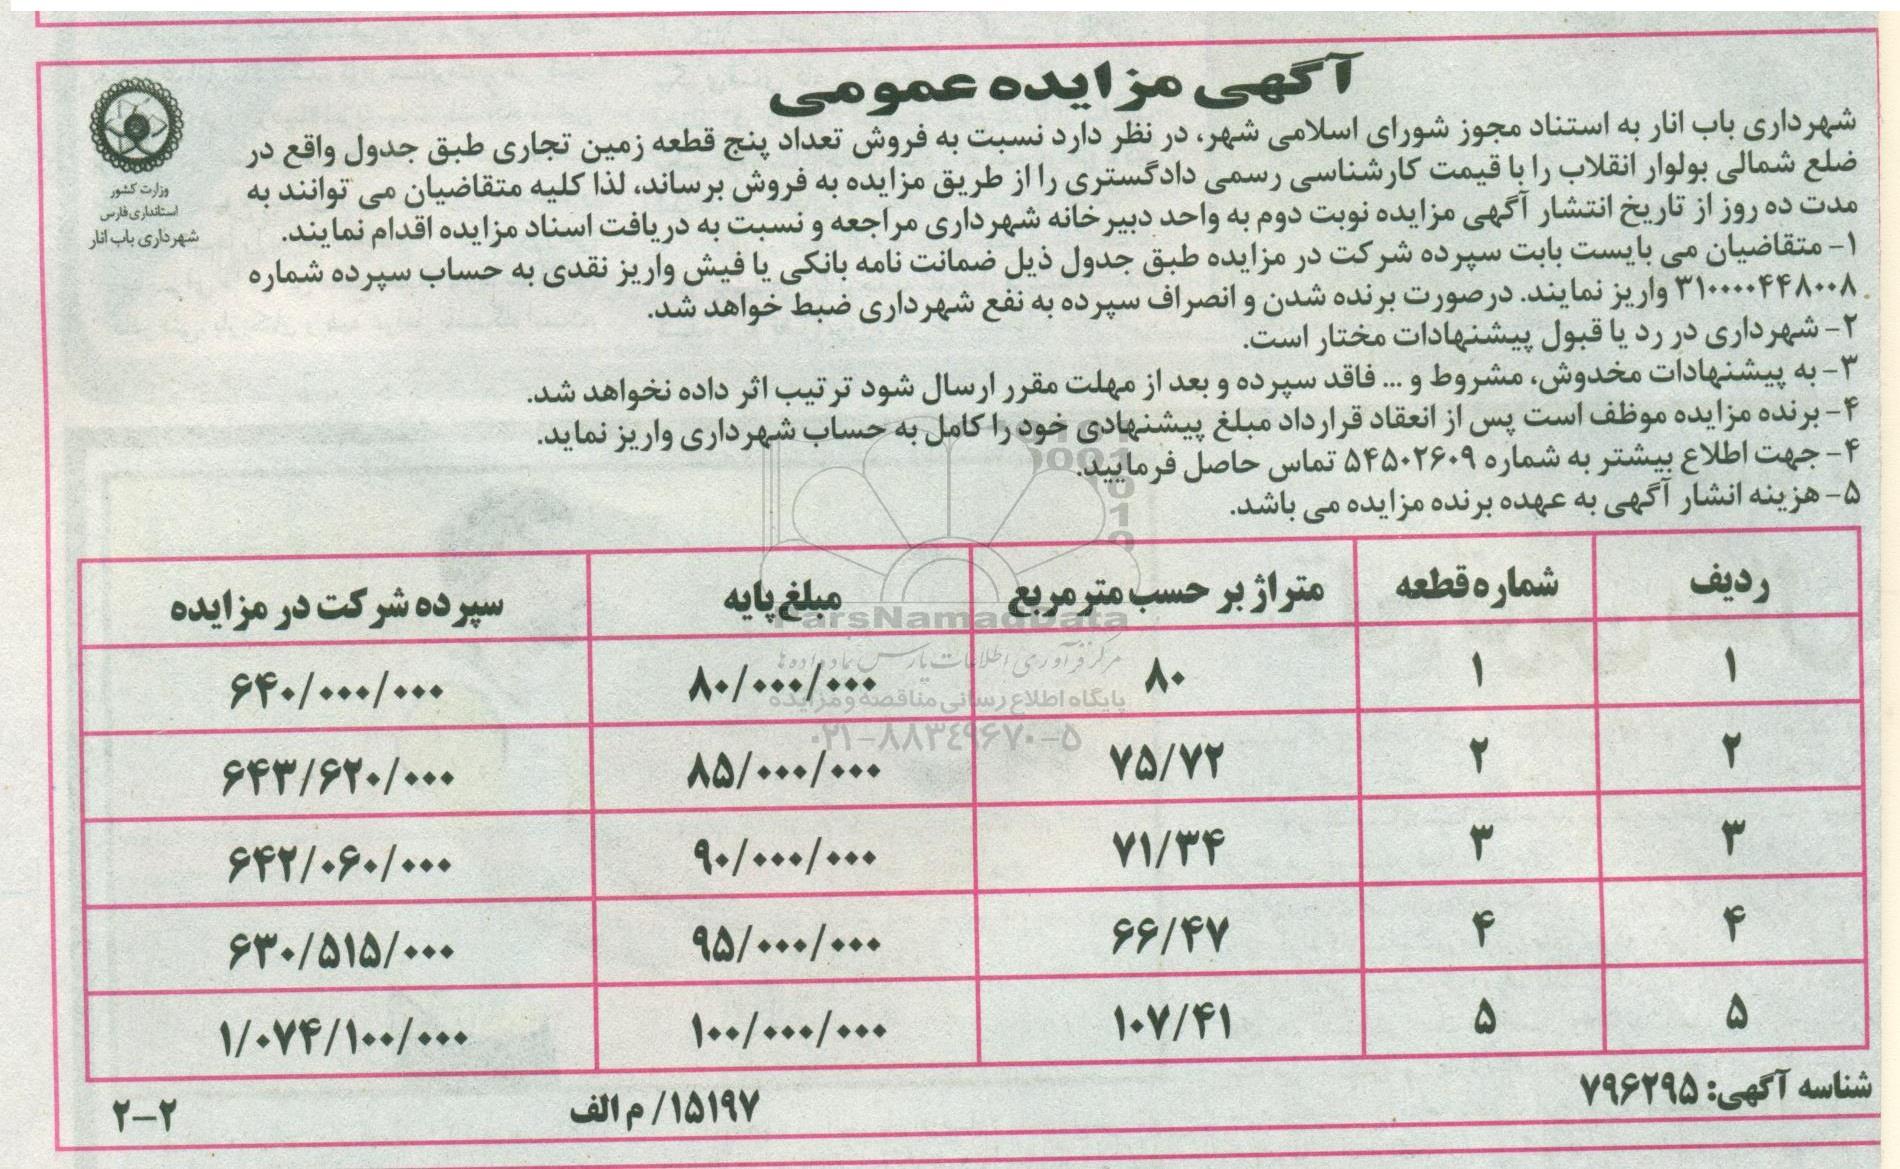 آگهی مزایده عمومی
وزارت کشور
استانداری فارس
شهرداری باب انار
شهرداری باب انار به استناد مجوز شورای اسلامی شهر، در نظر دارد نسبت به فروش تعداد پنج قطعه زمین تجاری طبق جدول واقع در
ضلع شمالی بولوار انقلاب را با قیمت کارشناسی رسمی دادگستری را از طریق مزایده به فروش برساند، لذا کلیه متقاضیان می توانند به
مدت ده روز از تاریخ انتشار آگهی مزایده نوبت دوم به واحد دبیرخانه شهرداری مراجعه و نسبت به دریافت اسناد مزایده اقدام نمایند.
۱- متقاضیان می بایست بابت سپرده شرکت در مزایده طبق جدول ذیل ضمانت نامه بانکی یا فیش واریز نقدی به حساب سپرده شماره
۳۱۰۰۰۰۴۴۸۰۰۸ واریز نمایند. درصورت برنده شدن و انصراف سپرده به نفع شهرداری ضبط خواهد شد.
۲- شهرداری در رد یا قبول پیشنهادات مختار است.
۳- به پیشنهادات مخدوش، مشروط و ... فاقد سپرده و بعد از مهلت مقرر ارسال شود ترتیب اثر داده نخواهد شد.
۴- برنده مزایده موظف است پس از انعقاد قرارداد مبلغ پیشنهادی خود را کامل به حساب شهرداری واریز نماید.
۴- جهت اطلاع بیشتر به شماره ۵۴۵۰۲۶۰۹ تماس حاصل فرمایید.
۵- هزینه انشار آگهی به عهده برنده مزایده می باشد.
ردیف شماره قطعه متراژ بر حسب مترمربع مبلغ پایه سپرده شرکت در مزایده
۱ ۱ ۸۰ ۸۰/۰۰۰/۰۰۰ ۶۴۰/۰۰۰/۰۰۰
۲ ۲ ۷۵/۷۲ ۸۵/۰۰۰/۰۰۰ ۶۴۳/۶۲۰/۰۰۰
۳ ۳ ۷۱/۳۴ ۹۰/۰۰۰/۰۰۰ ۶۴۲/۰۶۰/۰۰۰
۴ ۴ ۶۶/۴۷ ۹۵/۰۰۰/۰۰۰ ۶۳۰/۵۱۵/۰۰۰
۵ ۵ ۱۰۷/۴۱ ۱۰۰/۰۰۰/۰۰۰ ۱/۰۷۴/۱۰۰/۰۰۰
ParsNamadData
مرکز فرآوری اطلاعات پارس نماد داده ها
پایگاه اطلاع رسانی مناقصه و مزایده
۰۲۱-۸۸۳۴۹۶۷۰-۵
شناسه آگهی: ۷۹۶۲۹۵
۱۵۱۹۷/ م الف
۲-۲